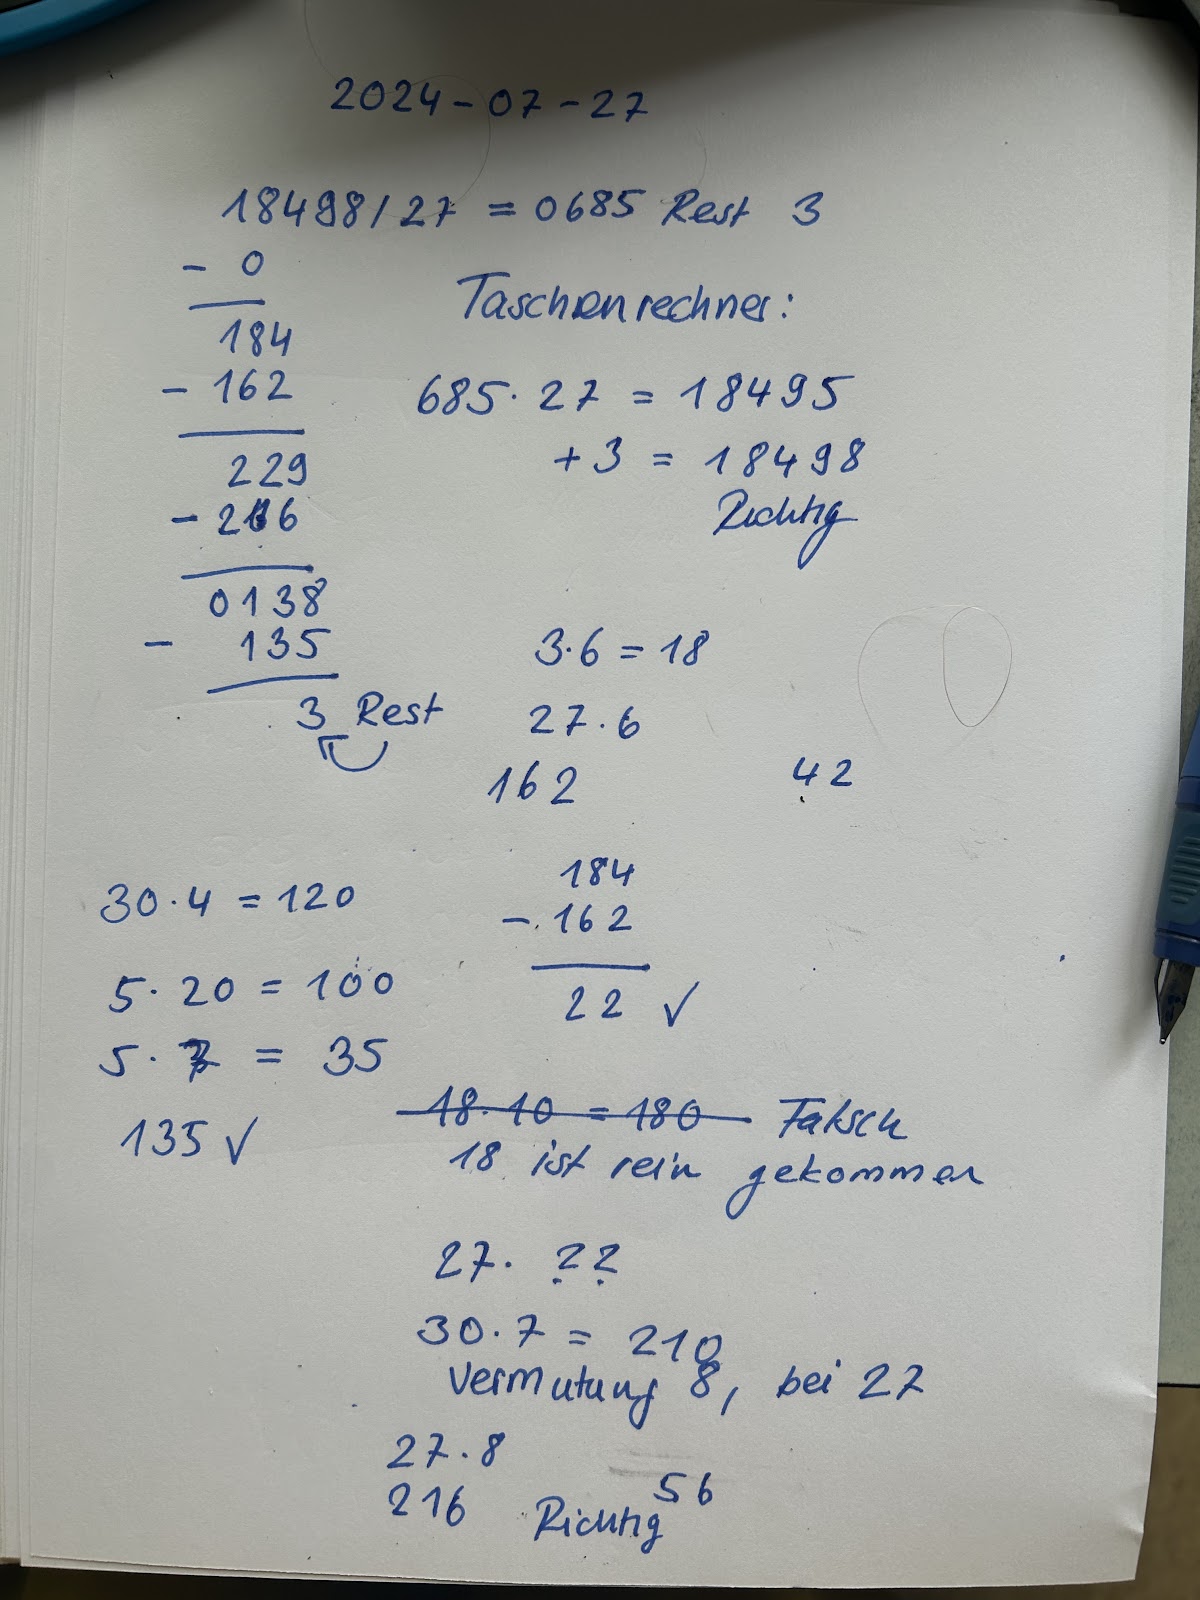 2024-07-27
18498/27 = 0685 Rest 3
- 0
184
- 162
229
- 216
0138
- 135
3 Rest
Taschenrechner:
685 · 27 = 18495
+ 3 = 18498
Richtig
3 · 6 = 18
27 · 6
162
42
184
- 162
22 ✓
30 · 4 = 120
5 · 20 = 100
5 · 7 = 35
135 ✓
18 · 10 = 180 Falsch
18 ist rein gekommen
27 · ??
30 · 7 = 210
Vermutung 8, bei 27
27 · 8
56
216 Richtig